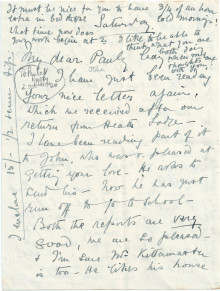 It must be nice for you to have 3/4 of an hour
extra in bed that Saturday cold morning!
that time now does
your work begin at? I like to be able to
think what you are
each day
My dear Paul
I have just been reading
your nice letter again,
which we received after our
return from Heath Lodge -
I have been reading part of it
to John, who was so pleased at
getting your love. He asks to
send his - now he has just
run off to go to school -
Both the reports are very
good, we are so pleased
& I'm sure Mr Kittermaster
is too - He likes his house
I enclose 15/-